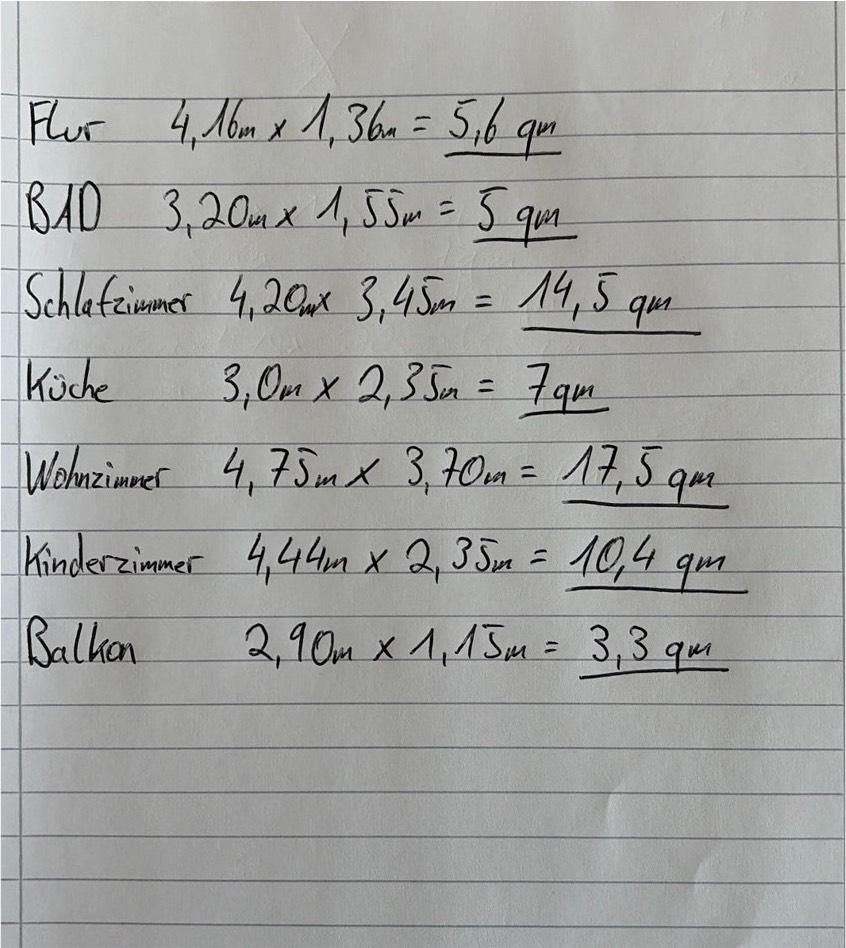 Flur 4,16m x 1,36m = 5,6 qm
BAD 3,20m x 1,55m = 5 qm
Schlafzimmer 4,20m x 3,45m = 14,5 qm
Küche 3,0m x 2,35m = 7qm
Wohnzimmer 4,75m x 3,70m = 17,5 qm
Kinderzimmer 4,44m x 2,35m = 10,4 qm
Balkon 2,90m x 1,15m = 3,3 qm